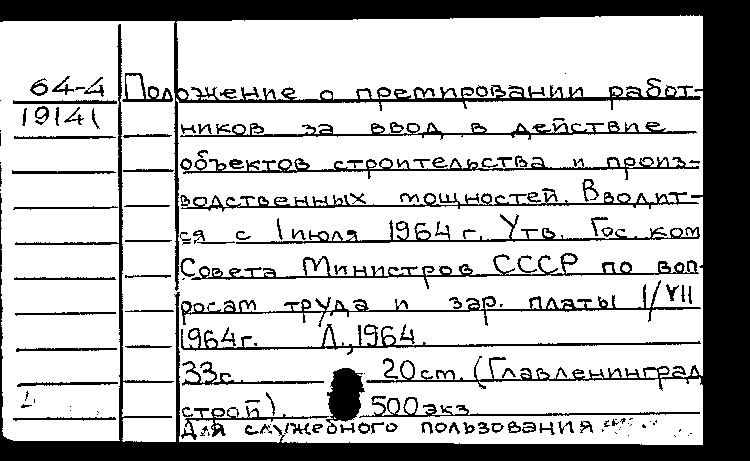 64-4 Положение о премировании работ-
19141 ников за ввод в действие
объектов строительства и произ-
водственных мощностей. Вводит-
ся с 1 июля 1964 г. Утв. Гос. ком
Совета Министров СССР по воп-
росам труда и зар. платы 1/VII
1964г. Л., 1964.
33с. 20 ст. (Главленинград
строй). 500 экз
Для служебного пользования